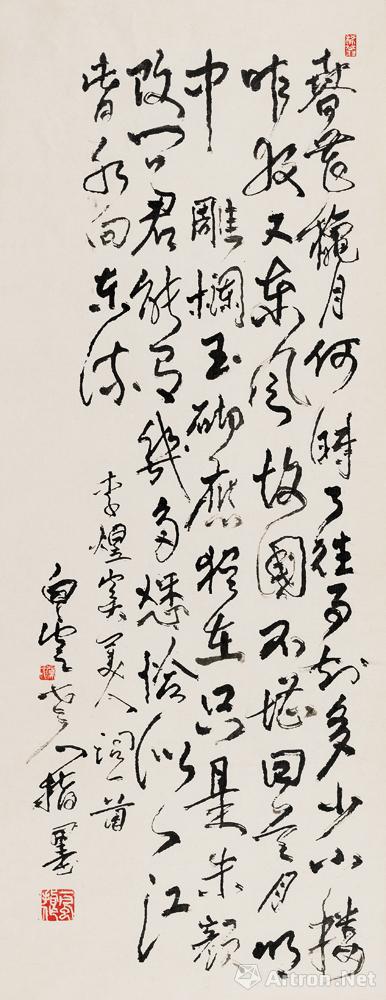 春花龝月何時了往事知多少小樓
昨夜又東風故國不堪回首月明
中雕欄玉砌應猶在只是朱顏
改問君能有幾多愁恰似一江
春水向東流
李煜虞美人詞一首
白雲老人指墨
Artron.Net